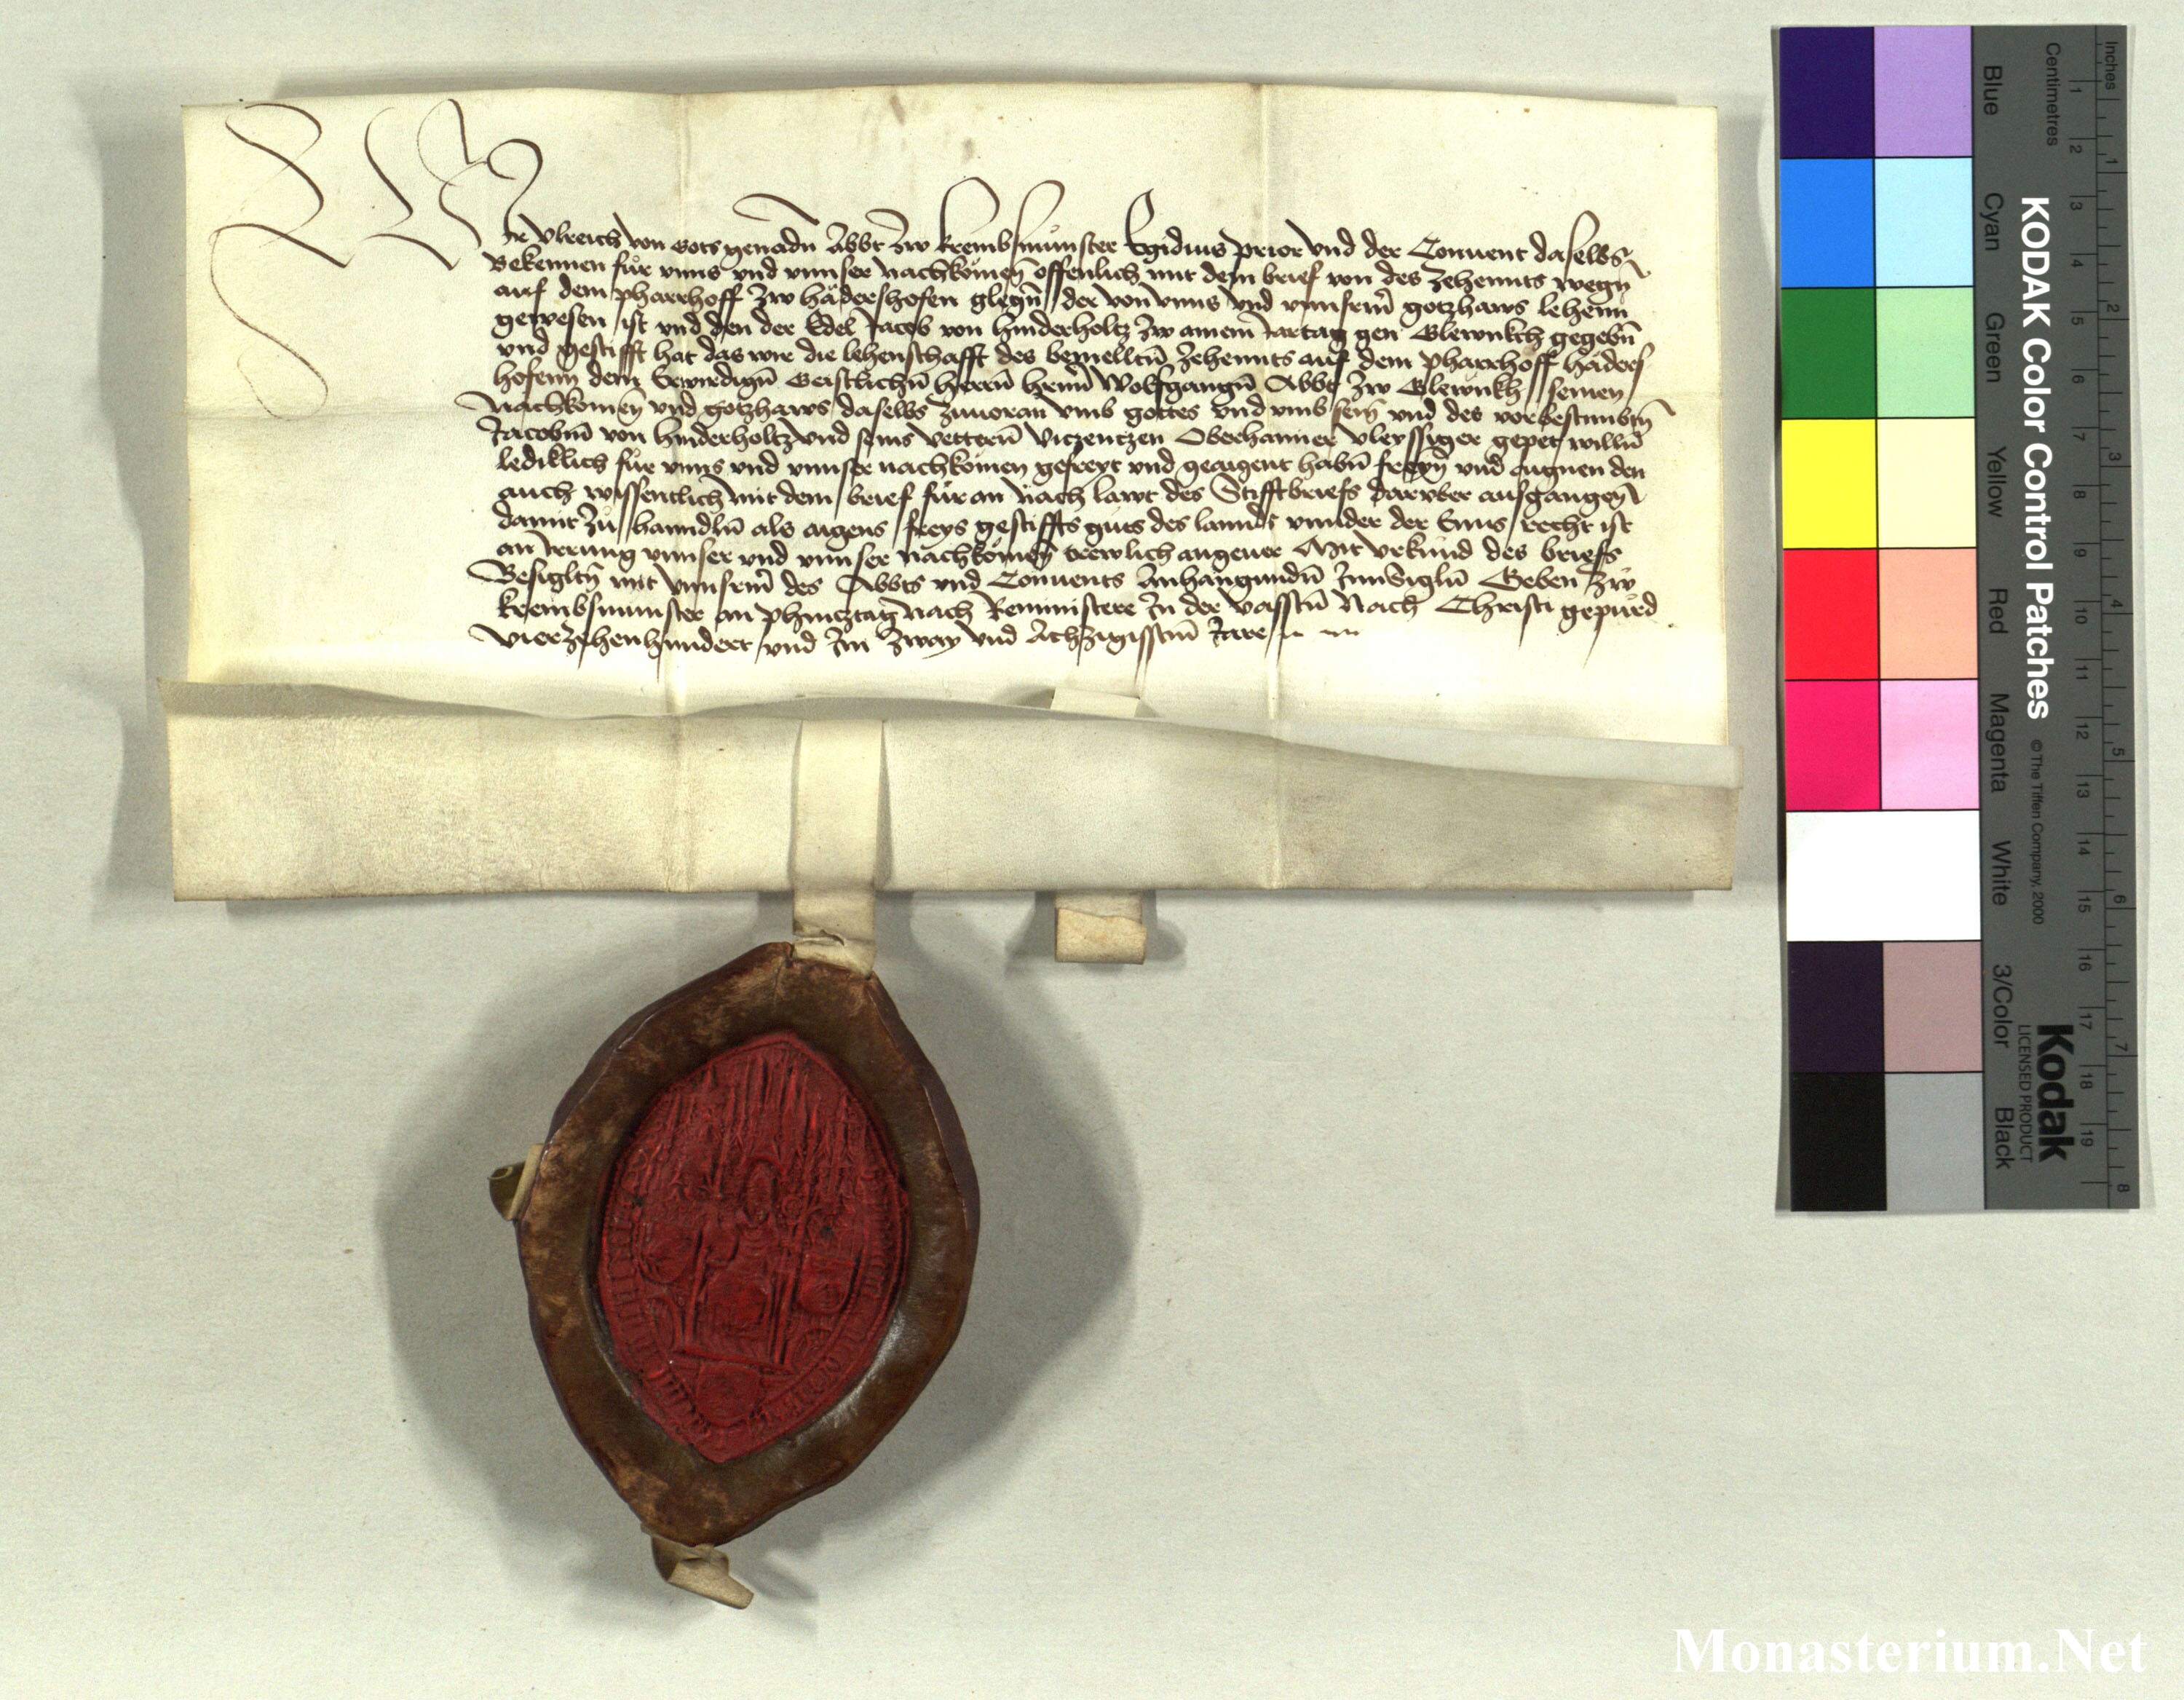 Wir Vlreich von Gots genadn̄ Abbt zw Krembsmu̇nster Egidius prior vnd der Conuent daselbs
Bekennen fu̇r vnns vnd vnnser nachkomen̄ offenlich mit dem brief von des zehennts wegn̄
auf dem pharrhoff zw hädershofen glegn̄ der von vnns vnd vnnserm̄ gotzhaws lehenn
gewesen ist vnd den der Edel Jacob von hinderholtz zw ainem Jartag gen Glewnkch gegebn̄
vnd gestifft hat das wir die lehenschafft des bemelltn̄ zehennts auf dem pharrhoff häders
hofenn dem Erwirdign̄ Geistlichn̄ herrn̄ herrn̄ Wolfgangn̄ Abbt zw Glewnkh seinen
Nachkomen̄ vnd gotzhaws daselbs zuuoran vmb gottes vnd vmb sein̄ vnd des vorbestimbtn̄
Jacobn̄ von hinderholtz vnd seins vettern̄ Viczentzen Oberhaimer vleyssiger gepet willn̄
lediklich fu̇r vnns vnd vnnser nachkomen gefreyt vnd geaigent habn̄ freyn̄ vnd aignen den
auch wissentlich mit dem brief fu̇r an nach lawt des Stifftbriefs darvber ausgangen̄
damit zu̇ hanndln̄ als aigens freys gestiffts guts des lannds vnnder der Enns recht ist
an Irrung vnnser vnd vnnser nachkomen̄ trewlich angeuer Mit vrkund des briefs
Besigltn̄ mit vnnserm̄ des Abbts vnd Conuents Anhangundn̄ Innsigln̄ Geben zw
Krembsmunster an phincztag nach Reministere In der vasstn̄ Nach Christi gepu̇rd
vierzehenhundert vnd Im zway vnd Achzigisstn̄ Jare
KODAK Color Control Patches © The Tiffen Company, 2000
Kodak
LICENSED PRODUCT
Inches
1 2 3 4 5 6 7 8
Centimetres
1 2 3 4 5 6 7 8 9 10 11 12 13 14 15 16 17 18 19
Blue Cyan Green Yellow Red Magenta White 3/Color Black
Monasterium.Net